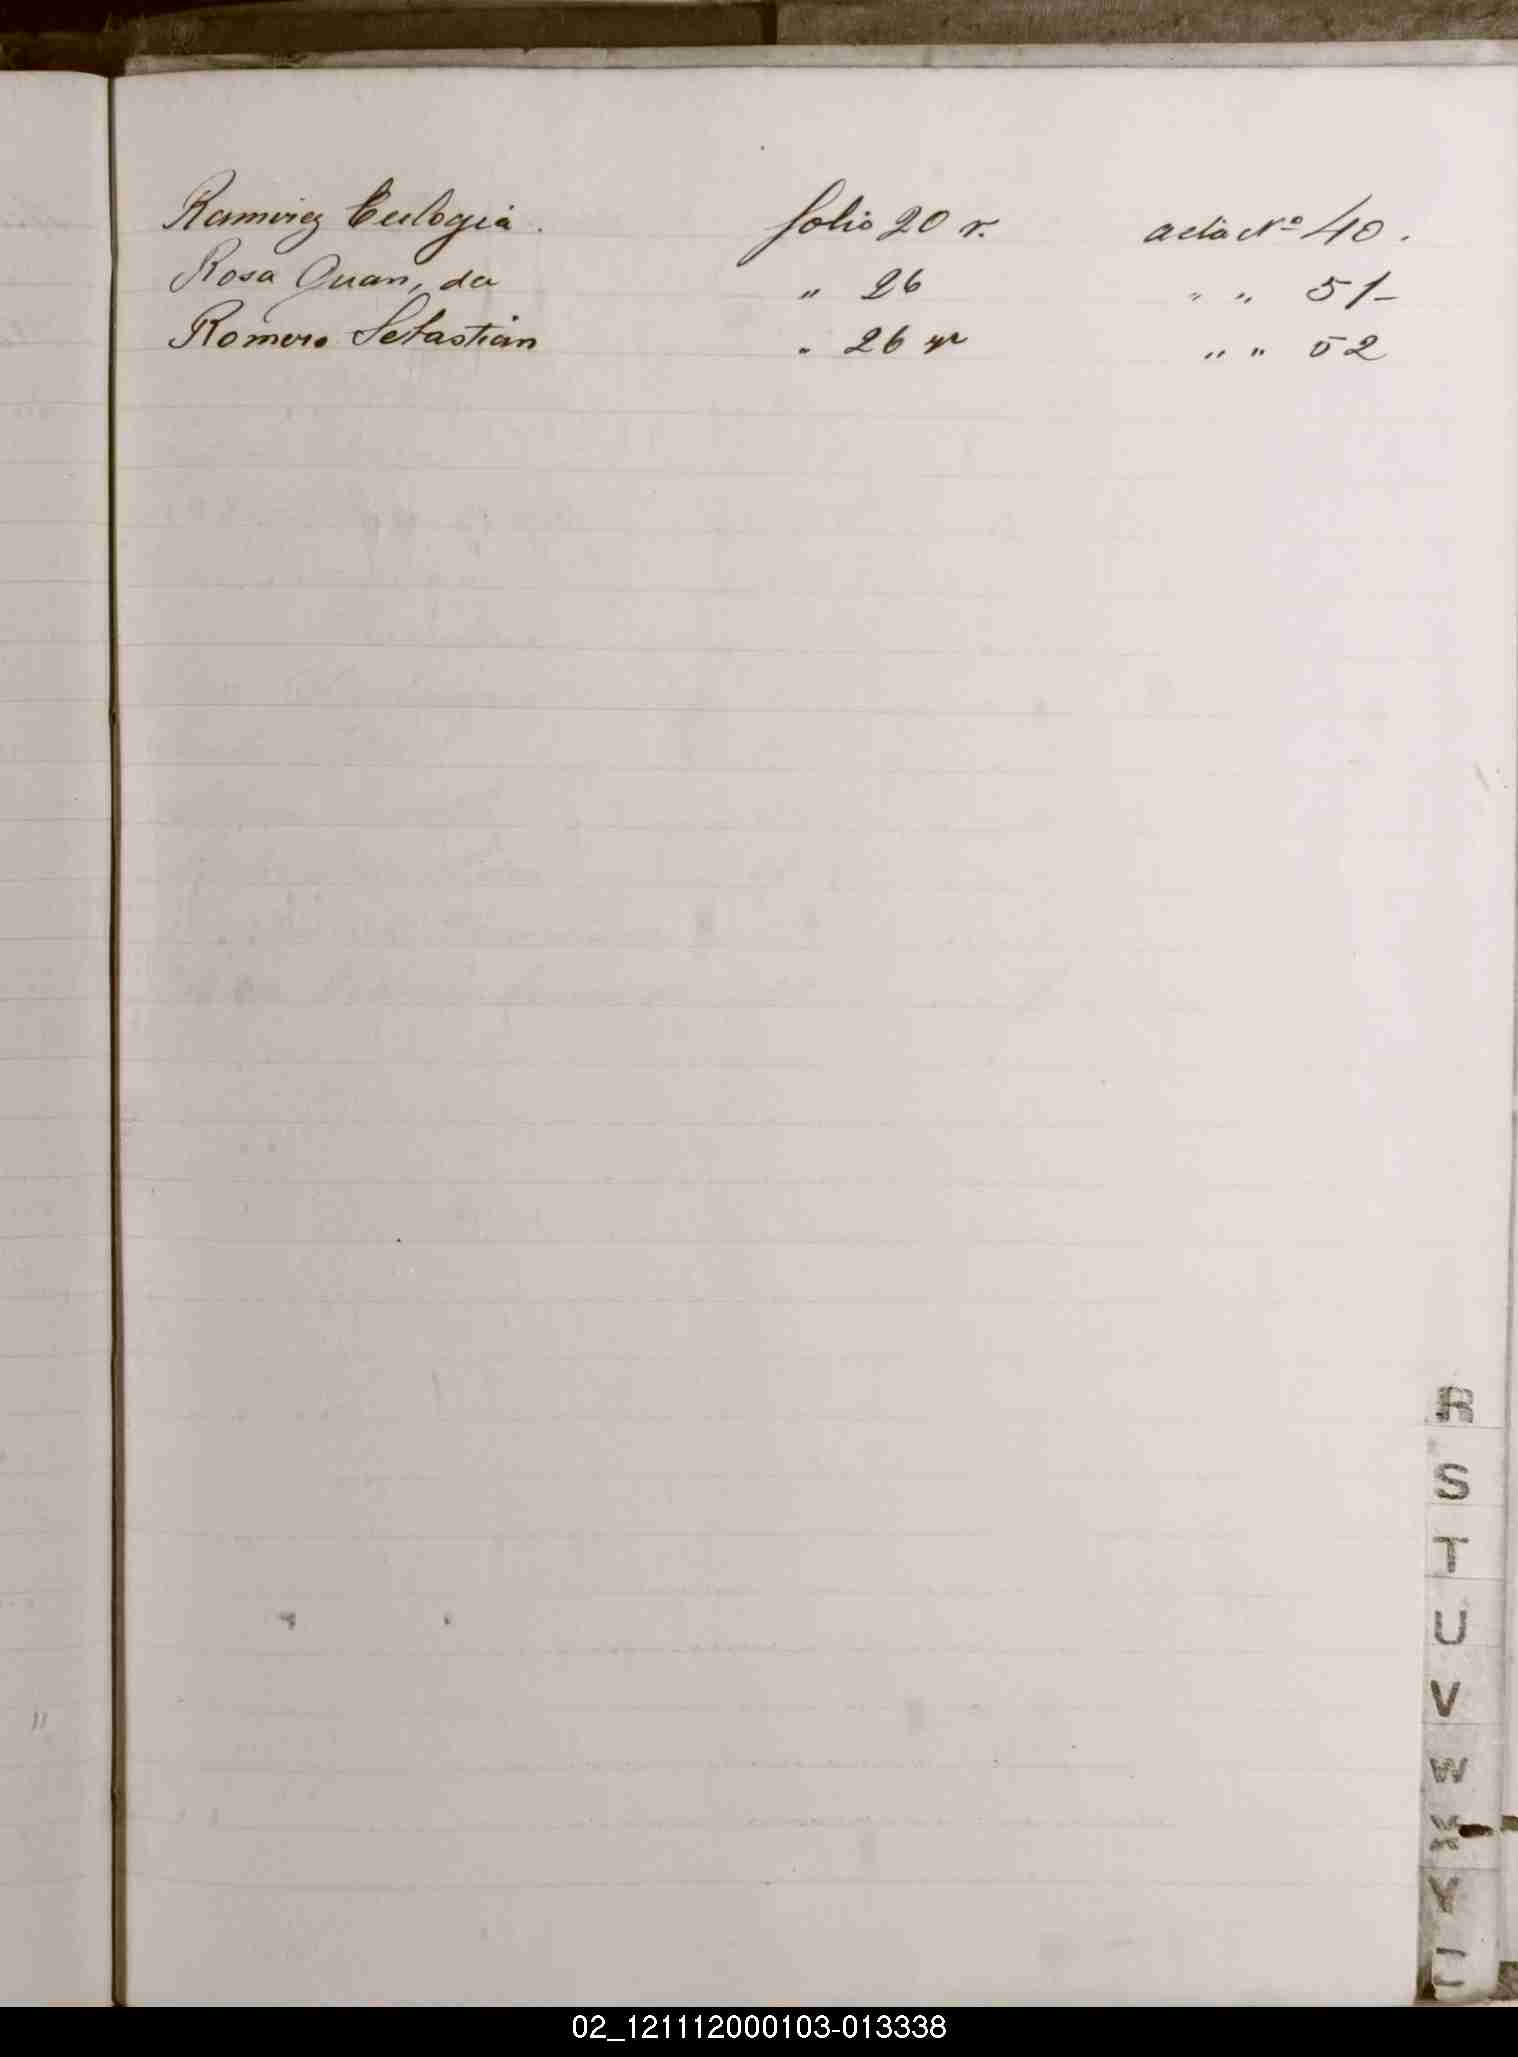 Ramirez Eulogia. folio 20 v. acta Nº 40.
Rosa Juan, da " 26 " " 51-
Romero Sebastian " 26 v " " 52
R
S
T
U
V
W
X
Y
Z
02_121112000103-013338